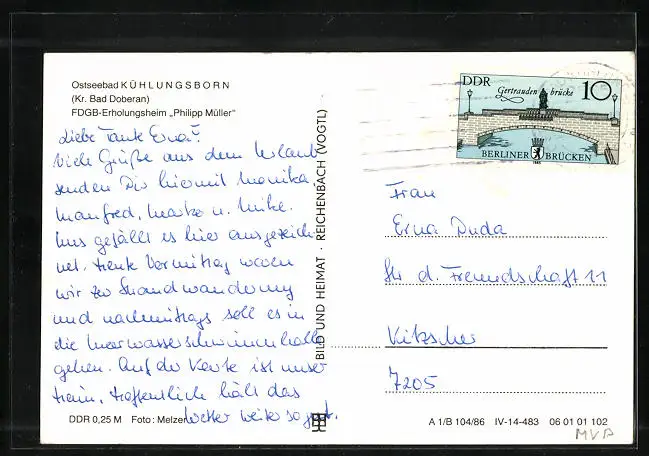 Ostseebad KÜHLUNGSBORN
(Kr. Bad Doberan)
FDGB-Erholungsheim „Philipp Müller"
Liebe Tante Erna!
Viele Grüße aus dem Urlaub
senden Dir hiermit Monika,
Manfred, Marko u. Mike.
Uns gefällt es hier ausgezeich-
net. Heute Vormittag waren
wir zur Strandwanderung
und nachmittags soll es in
die Meerwasserschwimmhalle
gehen. Auf der Karte ist unser
Heim, hoffentlich hält das
Wetter weiter so gut.
DDR 0,25 M Foto: Melzer
BILD UND HEIMAT · REICHENBACH (VOGTL)
DDR
Gertraudenbrücke
10
BERLINER BRÜCKEN
1985
Frau
Erna Duda
Str d. Freundschaft 11
Kitzscher
7205
A 1/B 104/86 IV-14-483 06 01 01 102
MVP